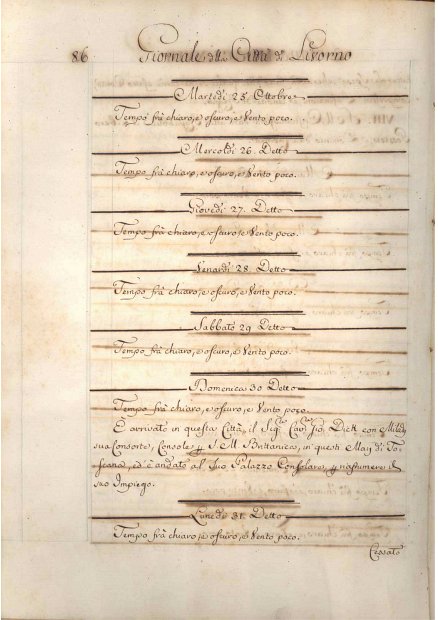 86 Giornale della Città di Livorno
Martedì 25 Ottobre
Tempo frà chiaro, e oscuro, e Vento poco.
Mercoldì 26. Detto
Tempo frà chiaro, e oscuro, e Vento poco.
Giovedì 27. Detto
Tempo frà chiaro, e oscuro, e Vento poco.
Venardì 28 Detto
Tempo frà chiaro, e oscuro, e Vento poco.
Sabbato 29 Detto
Tempo frà chiaro, e oscuro, e Vento poco.
Domenica 30 Detto
Tempo frà chiaro, e oscuro, e Vento poco.
È arrivato in questa Città, il Sig.r Cav.re Gio. Dick con Miledy
sua Consorte, Console p S. M. Brittanica, in questi Mari di To-
scana, ed è andato al suo Palazzo Consolare, p riassumere il
suo Impiego.
Lunedì 31. Detto
Tempo frà chiaro, e oscuro, e Vento poco.
Cessato